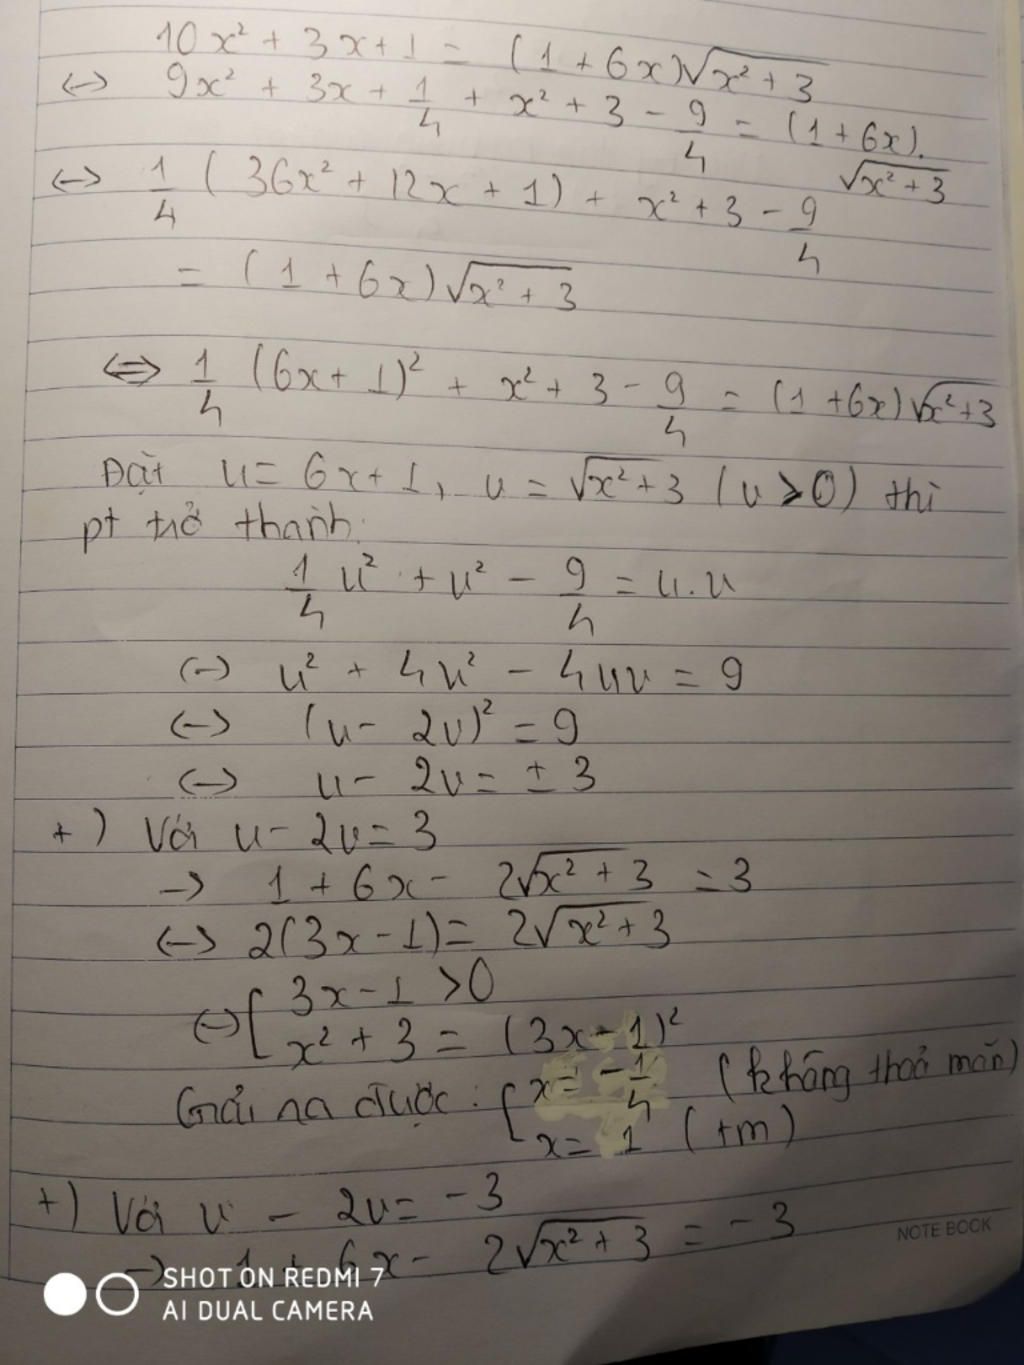 10x² + 3x + 1 = (1 + 6x)√(x² + 3)
<-> 9x² + 3x + 1/4 + x² + 3 - 9/4 = (1 + 6x).
√(x² + 3)
<-> 1/4 (36x² + 12x + 1) + x² + 3 - 9/4
= (1 + 6x)√(x² + 3)
<=> 1/4 (6x + 1)² + x² + 3 - 9/4 = (1 + 6x)√(x² + 3)
Đặt u = 6x + 1, v = √(x² + 3) (v ≥ 0) thì
pt trở thành:
1/4 u² + v² - 9/4 = u.v
<-> u² + 4v² - 4uv = 9
<-> (u - 2v)² = 9
<-> u - 2v = ± 3
+) Với u - 2v = 3
-> 1 + 6x - 2√(x² + 3) = 3
<-> 2(3x - 1) = 2√(x² + 3)
<-> [ 3x - 1 > 0
x² + 3 = (3x - 1)²
Giải ra được: [ x = -1/4 (không thoả mãn)
x = 1 (tm)
+) Với u - 2v = -3
-> 1 + 6x - 2√(x² + 3) = -3
NOTE BOOK
SHOT ON REDMI 7
AI DUAL CAMERA